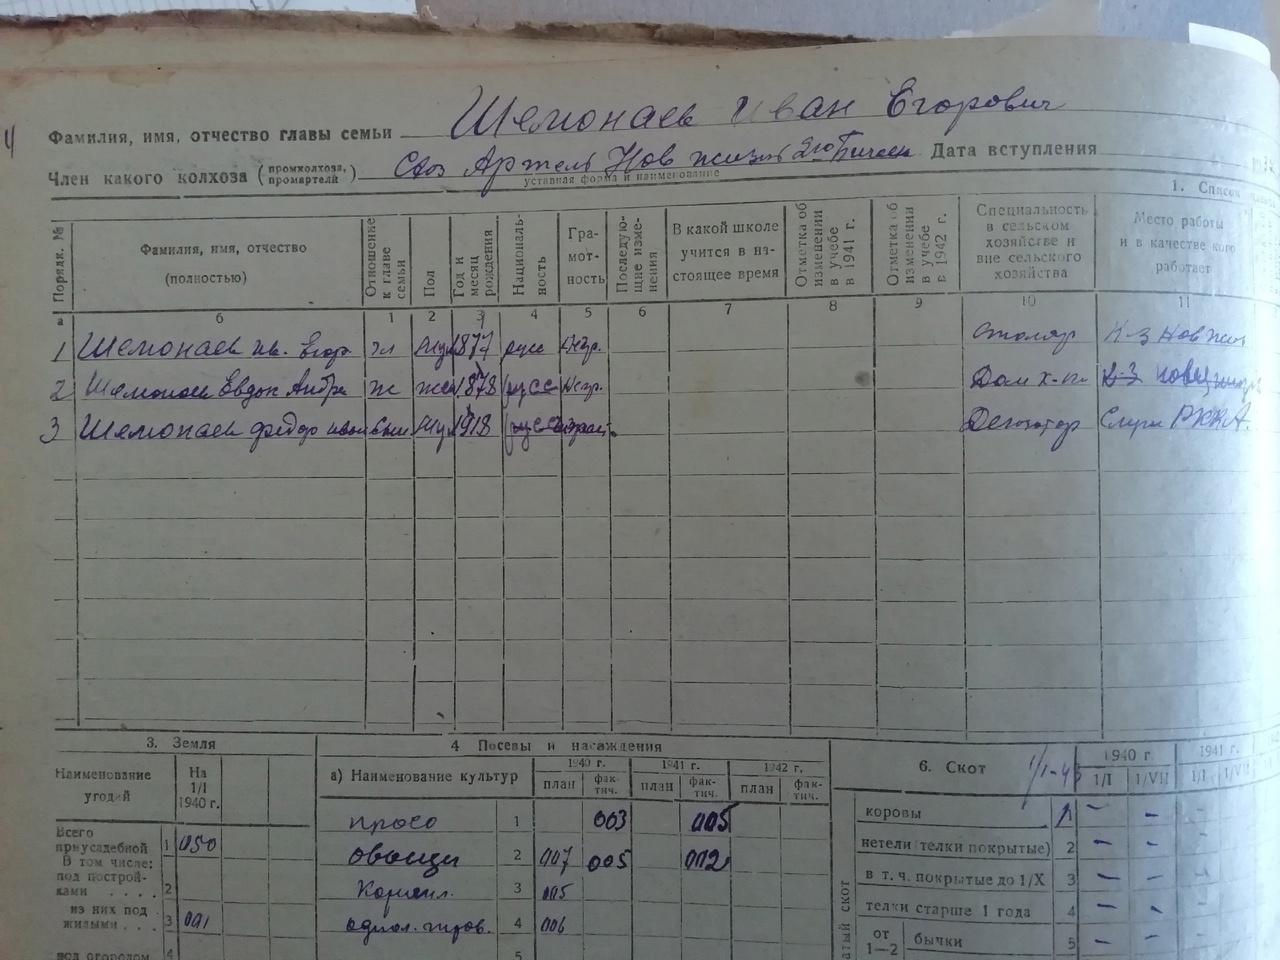 Фамилия, имя, отчество главы семьи Шемонаев Иван Егорович
Член какого колхоза (промколхоза, промартели) Артель Нов жизнь Дата вступления
уставная форма и наименование
1. Список
Порядк. № Фамилия, имя, отчество (полностью) Отношение к главе семьи Пол Год и месяц рождения Националь-ность Гра-мот-ность Последую-щие изме-нения В какой школе учится в на-стоящее время Отметка об изменении в учебе в 1941 г. Отметка об изменении в учебе в 1942 г. Специальность в сельском хозяйстве и вне сельского хозяйства Место работы и в качестве кого работает
а б 1 2 3 4 5 6 7 8 9 10 11
1 Шемонаев Ив. Егор гл Муж 1877 русс негр. столяр К-З Нов жиз
2 Шемонаев Евдок Андре ж жен 1878 русс негр. Дом х-ка К-З
3 Шемонаев Федор Иван сын Муж 1918 русс РККА.
3. Земля
Наименование угодий На 1/I 1940 г.
Всего приусадебной 1 050
В том числе: под построй-ками . . . . 2
из них под жилыми . . . 3 001
под огородом 4
4 Посевы и насаждения
а) Наименование культур 1940 г. 1941 г. 1942 г.
план фак-тич. план фак-тич. план фак-тич.
просо 1 003 005
овощи 2 007 005 002
3 005
4 006
5
6. Скот 1940 г. 1941 г.
1/I 1/VII 1/I 1/VII
коровы 1 – –
нетели (телки покрытые) 2 – –
в т. ч. покрытые до 1/X 3 – –
телки старше 1 года 4 – –
от 1—2 бычки 5 – –